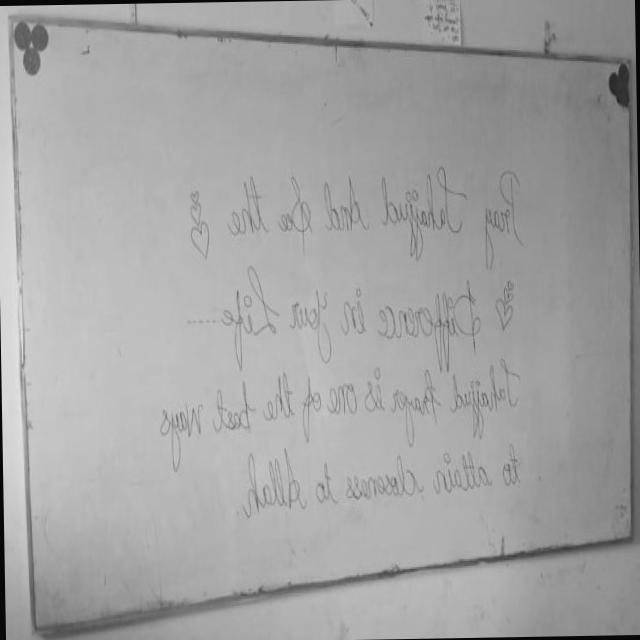 Pray Tahajjud And See the
Difference in your Life......
Tahajjud Prayer is one of the best ways
to attain closeness to Allah.